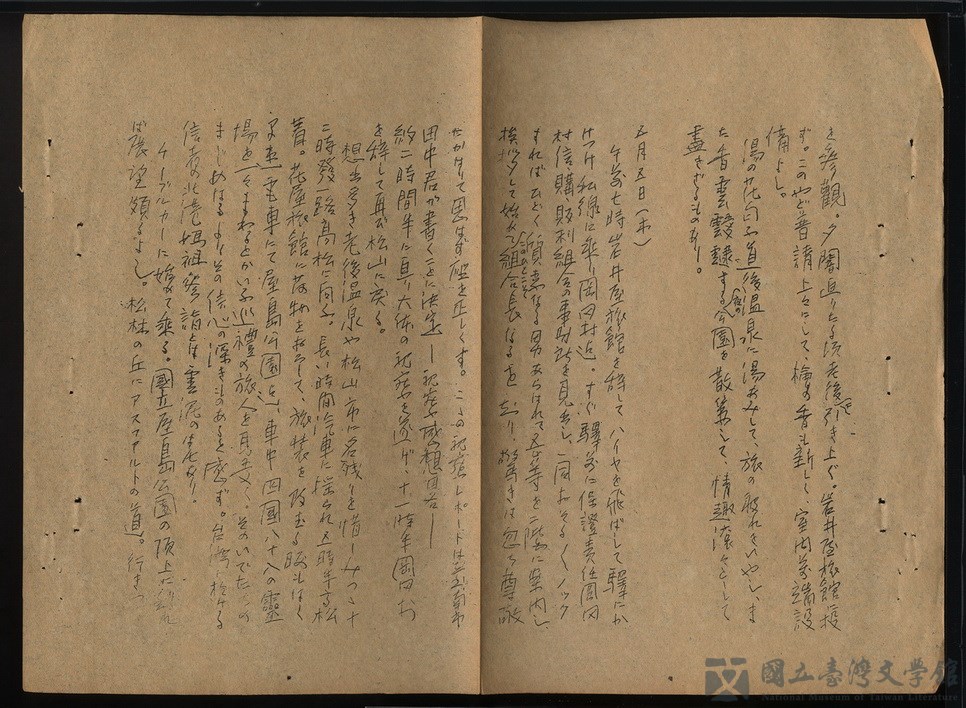 を參觀。夕闇迫りたる頃道後に引き上ぐ。岩井屋旅館投
ず。このやど普請上々にして、檜の香も新しく、室内萬端設
備よし。
湯の町道後温泉に湯あみして、旅の疲れをいやし、ま
た香雲靉靆する夜の公園を散策して、情趣津々として
盡きざるものあり。
五月五日(木)
午前七時岩井屋旅館を辞して、ハイヤを飛ばして驛にか
けつけ私線に乘り岡田村迄。すぐ驛前に保證責任岡田
村信購販利組合の事務所を見出し、一同おそるくノック
すればひどく慇懃なる男あらはれて吾等を二階に案内し、
挨拶して始めて組合長なることを知り、驚きは忽ち尊敬
たかはりて思はず座を正しくす。ここの視察レポートは
田中君が書くことに決定——視察感想略——
約二時間半に亘り大体の視察を遂げ、十一時半岡田村
を辞して再び松山に戻る。
想出多き道後温泉や松山市に名残りを惜しみつゝ十
二時發一路高松に向ふ。長い時間汽車に揺られ五時半高松
着。花屋旅館に荷物をおろして、旅装を改むる暇もなく
早速電車にて屋島公園迄、車中四國八十八の靈
場をへまわるとかいふ巡禮の旅人を見受く、そのいでたちの
まじめなるよりその信心の深きものあるを感ず。台湾に於ける
信者の北港媽祖參詣とは雲泥の差なり。
ケーブルカーに始めて乘る。國立屋島公園の頂上に到れ
ば展望頗るよし。松林の丘にアスファルトの道。行きつ